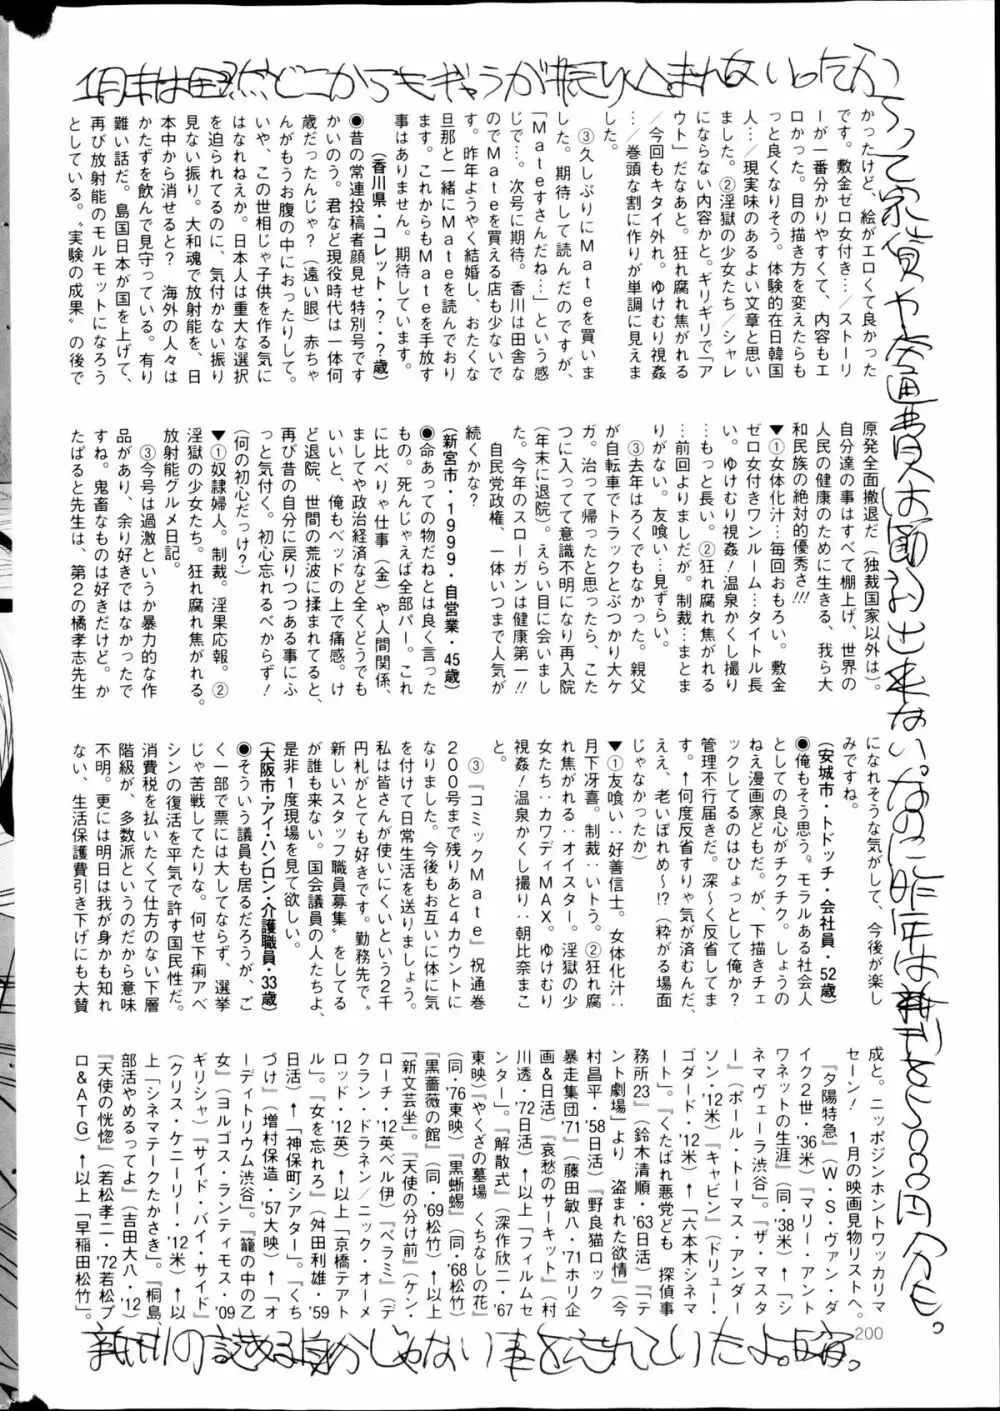 1月末は当然どこからもギャラが振り込まれないったから
って家賃や交通費は節約出来ない。なのに昨年は新刊を5000円分も。
かったけど、絵がエロくて良かった
です。敷金ゼロ女付き…/ストーリ
ーが一番分かりやすくて、内容もエ
ロかった。目の描き方を変えたらも
っと良くなりそう。体験的在日韓国
人…/現実味のあるよい文章と思い
ました。②淫獄の少女たち/シャレ
にならない内容かと。ギリギリで「ア
ウト」だなあと。狂れ腐れ焦がれる
/今回もキタイ外れ。ゆけむり視姦
…/巻頭な割に作りが単調に見えま
した。
③久しぶりにMateを買いま
した。期待して読んだのですが、
「Mateすさんだね…」という感
じで…。次号に期待。香川は田舎な
のでMateを買える店も少ないで
す。昨年ようやく結婚し、おたくな
旦那と一緒にMateを読んでおり
ます。これからもMateを手放す
事はありません。期待しています。
(香川県・コレット・?・?歳)
●昔の常連投稿者顔見せ特別号です
かいのう。君など現役時代は一体何
歳だったんじゃ?(遠い眼)赤ちゃ
んがもうお腹の中におったりして。
いや、この世相じゃ子供を作る気に
はなれねえか。日本人は重大な選択
を迫られてるのに、気付かない振り
見ない振り。大和魂で放射能を、日
本中から消せると? 海外の人々は
かたずを飲んで見守っている。有り
難い話だ。島国日本が国を上げて、
再び放射能のモルモットになろう
としている。〝実験の成果〟の後で
原発全面撤退だ(独裁国家以外は)。
自分達の事はすべて棚上げ、世界の
人民の健康のために生きる、我ら大
和民族の絶対的優秀さ!!!
▼①女体化汁…毎回おもろい。敷金
ゼロ女付きワンルーム…タイトル長
い。ゆけむり視姦!温泉かくし撮り
…もっと長い。②狂れ腐れ焦がれる
…前回よりましだが。制裁…まとま
りがない。友喰い…見ずらい。
③去年はろくでもなかった。親父
が自転車でトラックとぶつかり大ケ
ガ。治って帰ったと思ったら、こた
つに入ってて意識不明になり再入院
(年末に退院)。えらい目に会いまし
た。今年のスローガンは健康第一!!
自民党政権、一体いつまで人気が
続くかな?
(新宮市・1999・自営業・45歳)
●命あっての物だねとは良く言った
もの。死んじゃえば全部パー。これ
に比べりゃ仕事(金)や人間関係、
ましてや政治経済など全くどうでも
いいと、俺もベッドの上で痛感。け
ど退院、世間の荒波に揉まれてると、
再び昔の自分に戻りつつある事にふ
っと気付く。初心忘れるべからず!
(何の初心だっけ?)
▼①奴隷婦人。制裁。淫果応報。②
淫獄の少女たち。狂れ腐れ焦がれる。
放射能グルメ日記。
③今号は過激というか暴力的な作
品があり、余り好きではなかったで
すね。鬼畜なものは好きだけど。か
たばると先生は、第2の橘孝志先生
になれそうな気がして、今後が楽し
みですね。
(安城市・トドッチ・会社員・52歳)
●俺もそう思う。モラルある社会人
としての良心がチクチク。しょうの
ねえ漫画家どもだ。が、下描きチェ
ックしてるのはひょっとして俺か?
管理不行届きだ。深〜く反省してま
す。↑何度反省すりゃ気が済むんだ、
ええ、老いぼれめ〜!?(粋がる場面
じゃなかったか)
▼①友喰い‥好善信士。女体化汁‥
月下冴喜。制裁‥いトう。②狂れ腐
れ焦がれる‥オイスター。淫獄の少
女たち‥カワディMAX。ゆけむり
視姦!温泉かくし撮り‥朝比奈まこ
と。
③『コミックMate』祝通巻
200号まで残りあと4カウントに
なりました。今後もお互いに体に気
を付けて日常生活を送りましょう。
私は皆さんが使いにくいという2千
円札がとても好きです。勤務先で〝
新しいスタッフ職員募集〟をしてる
が誰も来ない。国会議員の人たちよ、
是非1度現場を見て欲しい。
(大阪市・アイ・ハンロン・介護職員・33歳)
●そういう議員も居るだろうが、ご
く一部で票には大してならず、選挙
じゃ苦戦してたりな。何せ下痢アベ
シンの復活を平気で許す国民性だ。
消費税を払いたくて仕方のない下層
階級が、多数派というのだから意味
不明。更には明日は我が身かも知れ
ない、生活保護費引き下げにも大賛
成と。ニッポンジンホントワッカリマ
セーン! 1月の映画見物リストへ。
『夕陽特急』(W・S・ヴァン・ダ
イク2世・'36米)『マリー・アント
ワネットの生涯』(同・'38米)↑「シ
ネマヴェーラ渋谷」。『ザ・マスタ
ー』(ポール・トーマス・アンダー
ソン・'12米)『キャビン』(ドリュー・
ゴダード・'12米)↑「六本木シネマ
ート」。『くたばれ悪党ども 探偵事
務所23』(鈴木清順・'63日活)『テ
ント劇場』より 盗まれた欲情』(今
村昌平・'58日活)『野良猫ロック
暴走集団'71』(藤田敏八・'71ホリ企
画&日活)『哀愁のサーキット』(村
川透・'72日活)↑以上「フィルムセ
ンター」。『解散式』(深作欣二・'67
東映)『やくざの墓場 くちなしの花』
(同・'76東映)『黒蜥蜴』(同・'68松竹)
『黒薔薇の館』(同・'69松竹)↑以上
「新文芸坐」。『天使の分け前』(ケン・
ローチ・'12英ベル伊)『ベラミ』(デ
クラン・ドネラン/ニック・オーメ
ロッド・'12英)↑以上「京橋テアト
ル」。『女を忘れろ』(舛田利雄・'59
日活)↑「神保町シアター」。『くち
づけ』(増村保造・'57大映)↑「オ
ーディトリウム渋谷」。『籠の中の乙
女』(ヨルゴス・ランティモス・'09
ギリシャ)『サイド・バイ・サイド』
(クリス・ケニーリー・'12米)↑以
上「シネマテークたかさき」。『桐島、
部活やめるってよ』(吉田大八・'12)
『天使の恍惚』(若松孝二・'72若松プ
ロ&ATG)↑以上「早稲田松竹」。
200
新刊の読める身分じゃない事を忘れていたよ。